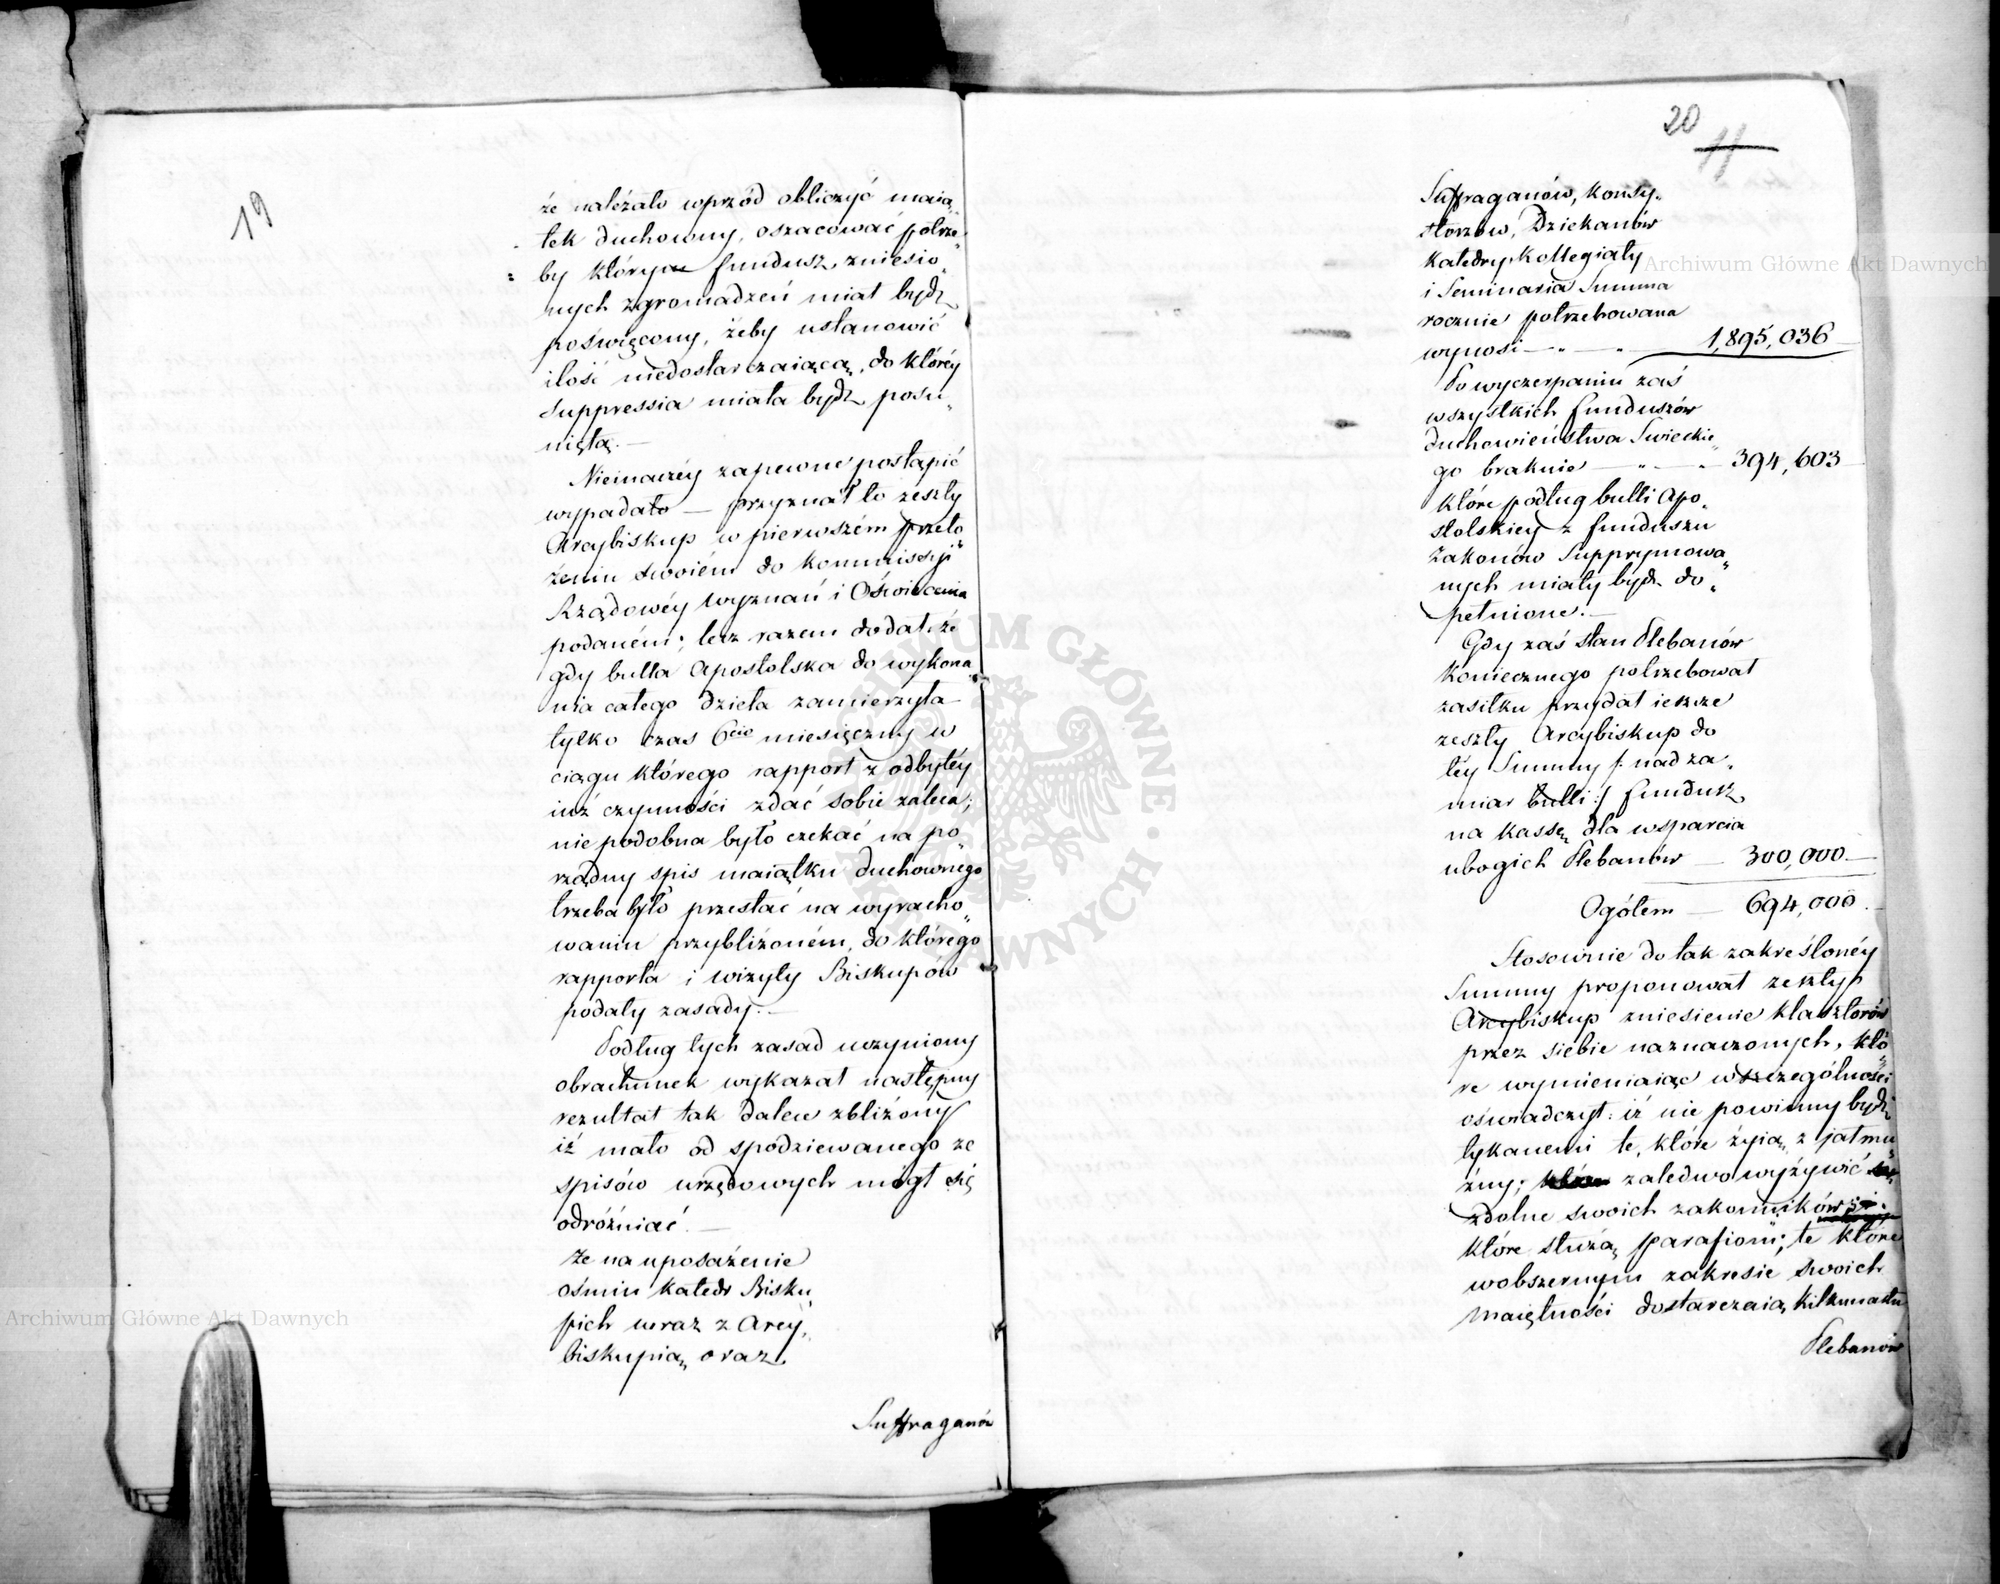 19
że należało wprzód obliczyć maią„
tek duchowny, oszacować potrze„
by którym fundusz zniesio„
nych zgromadzeń miał bydź
poświęcony, żeby ustanowić
ilość niedostarczaiącą, do któréy
Suppressia miała bydź posu„
niętą.—
Nieinaczéy zapewne postąpić
wypadało — przyznał to zeszły
Arcybiskup w pierwszém przeło„
żeniu swoiém do Kommissyi
Rządowéy Wyznań i Oświecenia
podaném; lecz razem dodał, że
gdy bulla Apostolska do wykona„
nia całego dzieła zamierzyła
tylko czas 6cio miesięczny w
ciągu którego rapport z odbytéy
iuż czynności zdać sobie zaleca;
niepodobna było czekać na po„
rządny spis maiątku duchownego
trzeba było przestać na wyracho„
waniu przybliżoném, do którego
rapporta i wizyty Biskupów
podały zasady.—
Podług tych zasad uczyniony
obrachunek wykazał następny
rezultat tak dalece zbliżony
iż mało od spodziewanego ze
spisów urzędowych mógł się
odróżniać.—
Że na uposażenie
ośmiu Katedr Bisku„
pich wraz z Arcy„
biskupią, oraz
Suffraganów
20
11
Suffraganów, Konsy„
storzów, Dziekanów
Katedry Kollegiaty
i Seminaria Summa
rocznie potrzebowana
wynosi — „ — „ — 1,895,036
Po wyczerpaniu zaś
wszystkich funduszów
duchowieństwa Swieckie„
go braknie — „ — „ 394,603
które podług bulli Apo„
stolskiey z funduszu
Zakonów Supprymowa„
nych miały bydź do„
pełnione.—
Gdy zaś stan Plebanów
koniecznego potrzebował
zasiłku przydał ieszcze
zeszły Arcybiskup do
téy Summy /: nad za„
miar bulli :/ fundusz
na kassę dla wsparcia
ubogich Plebanów — 300,000—
Ogółem — 694,000.
Stosownie do tak zakreślonéy
Summy proponował zeszły
Arcybiskup zniesienie klasztorów
przez siebie naznaczonych, któ„
re wymieniaiąc wszczególności
oświadczył: iż nie powinny bydź
tykanemi te, które żyią z jałmu„
żny; zaledwo wyżywić
zdolne swoich zakonników;
które służą parafiom; te które
wobszernym zakresie swoich
Maiętności dostarczaią kilkunastu
Plebanów
Archiwum Główne Akt Dawnych
Archiwum Główne Akt Dawnych
ARCHIWUM GŁÓWNE AKT DAWNYCH